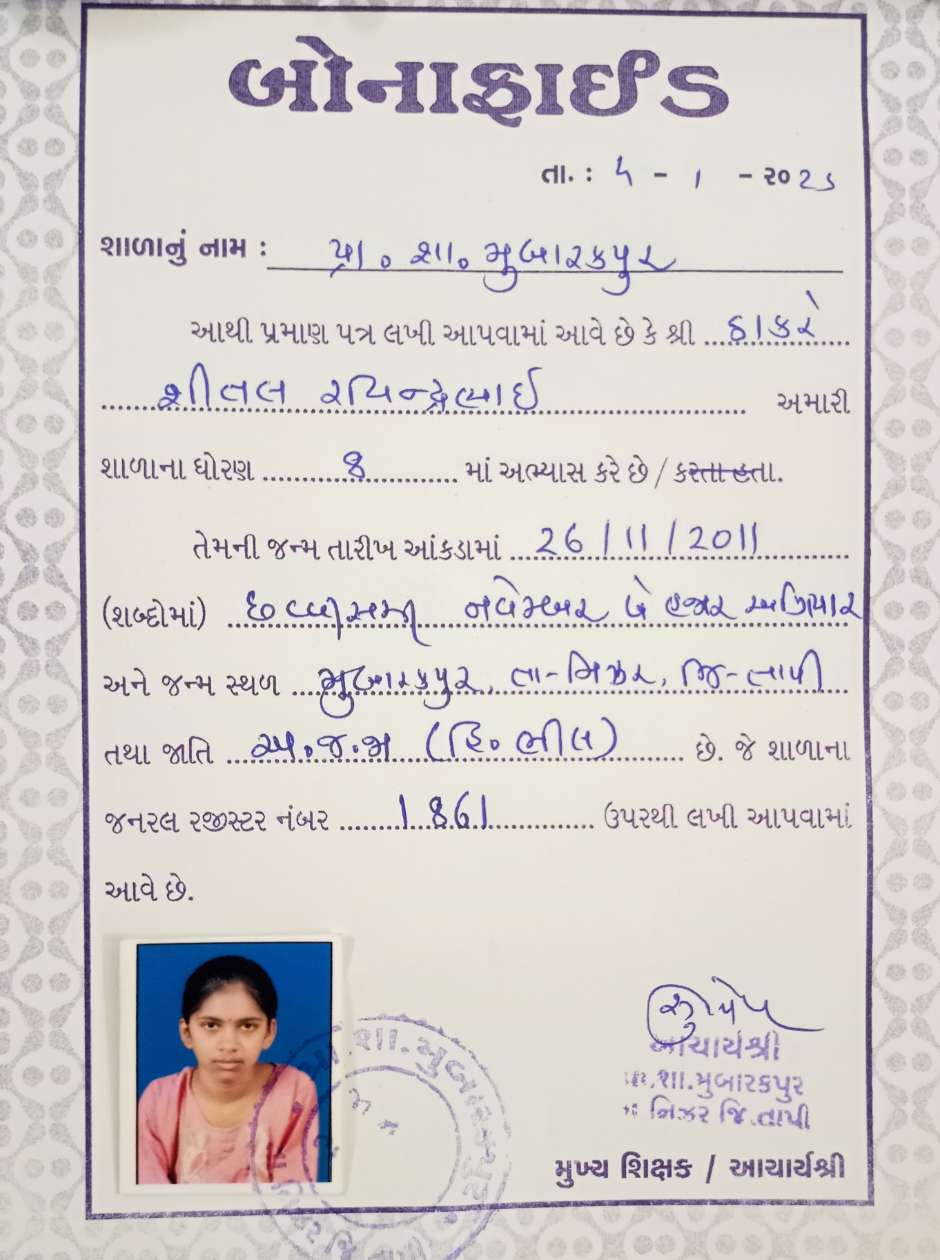 બોનાફાઈડ
તા. : ૫ - ૧ - ૨૦૨૬
શાળાનું નામ : પ્રા. શા. મુબારકપુર
આથી પ્રમાણ પત્ર લખી આપવામાં આવે છે કે શ્રી ઠાકરે
શીતલ રવિન્દ્રભાઈ અમારી
શાળાના ધોરણ ૪ માં અભ્યાસ કરે છે / કરતા હતા.
તેમની જન્મ તારીખ આંકડામાં 26/11/2011
(શબ્દોમાં) નવેમ્બર બે હજાર અગિયાર
અને જન્મ સ્થળ મુબારકપુર, તા-નિઝર, જિ-તાપી
તથા જાતિ અ.જ.જા (હિં. ભીલ) છે. જે શાળાના
જનરલ રજીસ્ટર નંબર 1861 ઉપરથી લખી આપવામાં
આવે છે.
આચાર્યશ્રી
પ્રા.શા.મુબારકપુર
નિઝર જિ.તાપી
મુખ્ય શિક્ષક / આચાર્યશ્રી
શા.મુબારકપુર